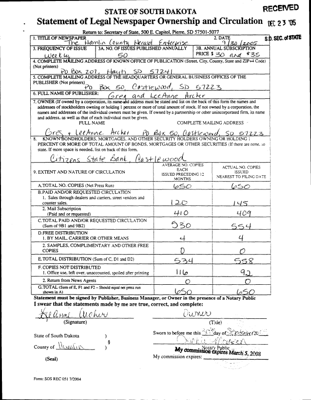 STATE OF SOUTH DAKOTA
RECEIVED
Statement of Legal Newspaper Ownership and Circulation
DEC 23 '05
Return to: Secretary of State, 500 E. Capitol, Pierre, SD 57501-5077
S.D. SEC. OF STATE
1. TITLE OF NEWSPAPER
2. DATE
The Hamlin County Herald Enterprise
3. FREQUENCY OF ISSUE
3A. NO. OF ISSUES PUBLISHED ANNUALLY
3B. ANNUAL SUBSCRIPTION
Weekly
50
PRICE $ 30 and $36
4. COMPLETE MAILING ADDRESS OF KNOWN OFFICE OF PUBLICATION (Street, City, County, State and ZIP+4 Code)
(Not printers)
PO Box 207, Hayti SD 57241
5. COMPLETE MAILING ADDRESS OF THE HEADQUARTERS OR GENERAL BUSINESS OFFICES OF THE
PUBLISHER (Not printers)
PO Box 50, Castlewood, SD 57223
6. FULL NAME OF PUBLISHER:
Greg and LeeAnne Archer
7. OWNER (If owned by a corporation, its name and address must be stated and
FULL NAME
COMPLETE MAILING ADDRESS
Greg & LeeAnne Archer PO Box 50, Castlewood, SD 57223
8. KNOWN BONDHOLDERS, MORTGAGES, AND OTHER SECURITY HOLDERS OWNING OR HOLDING 1
PERCENT OR MORE OF TOTAL AMOUNT OF BONDS, MORTGAGES OR OTHER SECURITIES (If there are none, so
state. If more space is needed, list on back of this form.
Citizens State Bank, Castlewood
9. EXTENT AND NATURE OF CIRCULATION
AVERAGE NO. COPIES
EACH
ISSUED PRECEDING 12
MONTHS
ACTUAL NO. COPIES
ISSUED
NEAREST TO FILING DATE
A. TOTAL NO. COPIES (Net Press Run)
650
650
B. PAID AND/OR REQUESTED CIRCULATION
1. Sales through dealers and carriers, street vendors and
counter sales.
120
145
2. Mail Subscription
(Paid and or requested)
410
409
C. TOTAL PAID AND/OR REQUESTED CIRCULATION
(Sum of 9B1 and 9B2)
530
554
D. FREE DISTRIBUTION
1. BY MAIL, CARRIER OR OTHER MEANS
4
4
2. SAMPLES, COMPLIMENTARY AND OTHER FREE
COPIES
0
0
E. TOTAL DISTRIBUTION (Sum of C, D1 and D2)
534
558
F. COPIES NOT DISTRIBUTED
1. Office use, left over, unaccounted, spoiled after printing
116
92
2. Return from News Agents
0
0
G. TOTAL (Sum of E, F1 and F2 - Should equal net press run
shown in A)
650
650
Statement must be signed by Publisher, Business Manager, or Owner in the presence of a Notary Public
I swear that the statements made by me are true, correct, and complete:
LeeAnne Archer
Owner
(Signature)
(Title)
State of South Dakota )
Sworn to before me this
day of
§
County of Hamlin )
Notary Public
My commission expires March 5, 2008
My commission expires:
(Seal)
Form: SOS REC 051 7/2004